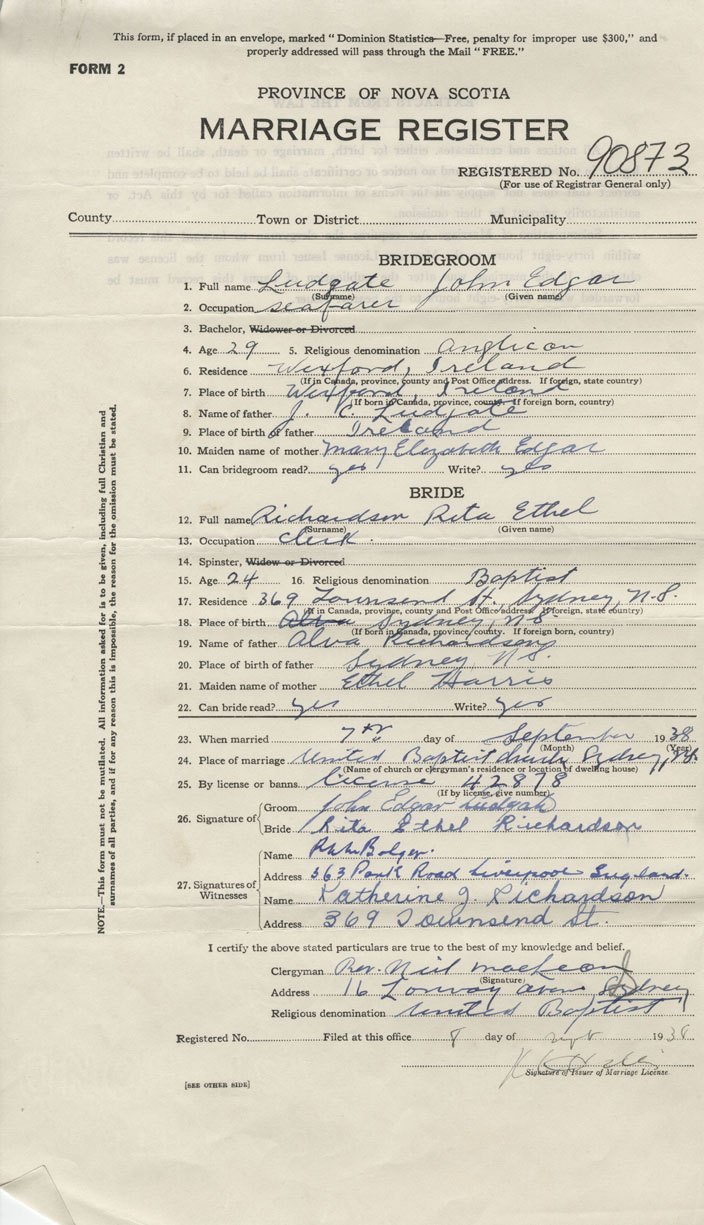 This form, if placed in an envelope, marked "Dominion Statistics—Free, penalty for improper use $300," and
properly addressed will pass through the Mail "FREE."
FORM 2
PROVINCE OF NOVA SCOTIA
MARRIAGE REGISTER
REGISTERED No. 90873
(For use of Registrar General only)
County Town or District Municipality
BRIDEGROOM
1. Full name Ludgate John Edgar
(Surname) (Given name)
2. Occupation seafarer
3. Bachelor, Widower or Divorced
4. Age 29 5. Religious denomination Anglican
6. Residence Wexford, Ireland
(If in Canada, province, county and Post Office address. If foreign, state country)
7. Place of birth Wexford Ireland
(If born in Canada, province, county. If foreign born, country)
8. Name of father J. C. Ludgate
9. Place of birth of father Ireland
10. Maiden name of mother Mary Elizabeth Edgar
11. Can bridegroom read? yes Write? yes
BRIDE
12. Full name Richardson Rita Ethel
(Surname) (Given name)
13. Occupation clerk.
14. Spinster, Widow or Divorced
15. Age 24 16. Religious denomination Baptist
17. Residence 369 Townsend St., Sydney, N.S.
(If in Canada, province, county and Post Office address. If foreign, state country)
18. Place of birth Alva Sydney, N.S.
(If born in Canada, province, county. If foreign born, country)
19. Name of father Alva Richardson
20. Place of birth of father Sydney N S.
21. Maiden name of mother Ethel Harris
22. Can bride read? yes Write? yes
23. When married 7th day of September 1938
(Month) (Year)
24. Place of marriage United Baptist Church Sydney, N.S.
(Name of church or clergyman's residence or location of dwelling house)
25. By license or banns. license 42878
(If by license, give number)
26. Signature of Groom John Edgar Ludgate
Bride Rita Ethel Richardson
27. Signatures of Witnesses
Name Bolger.
Address 363 Park Road Liverpool England.
Name Katherine J. Richardson
Address 369 Townsend St.
I certify the above stated particulars are true to the best of my knowledge and belief.
Clergyman Rev. Neil MacLeod
(Signature)
Address 16 Sydney
Religious denomination United Baptist
Registered No. Filed at this office 8 day of Sept 1938
Signature of Issuer of Marriage License
[SEE OTHER SIDE]
NOTE.—This form must not be mutilated. All information asked for is to be given, including full Christian and
surnames of all parties, and if for any reason this is impossible, the reason for the omission must be stated.